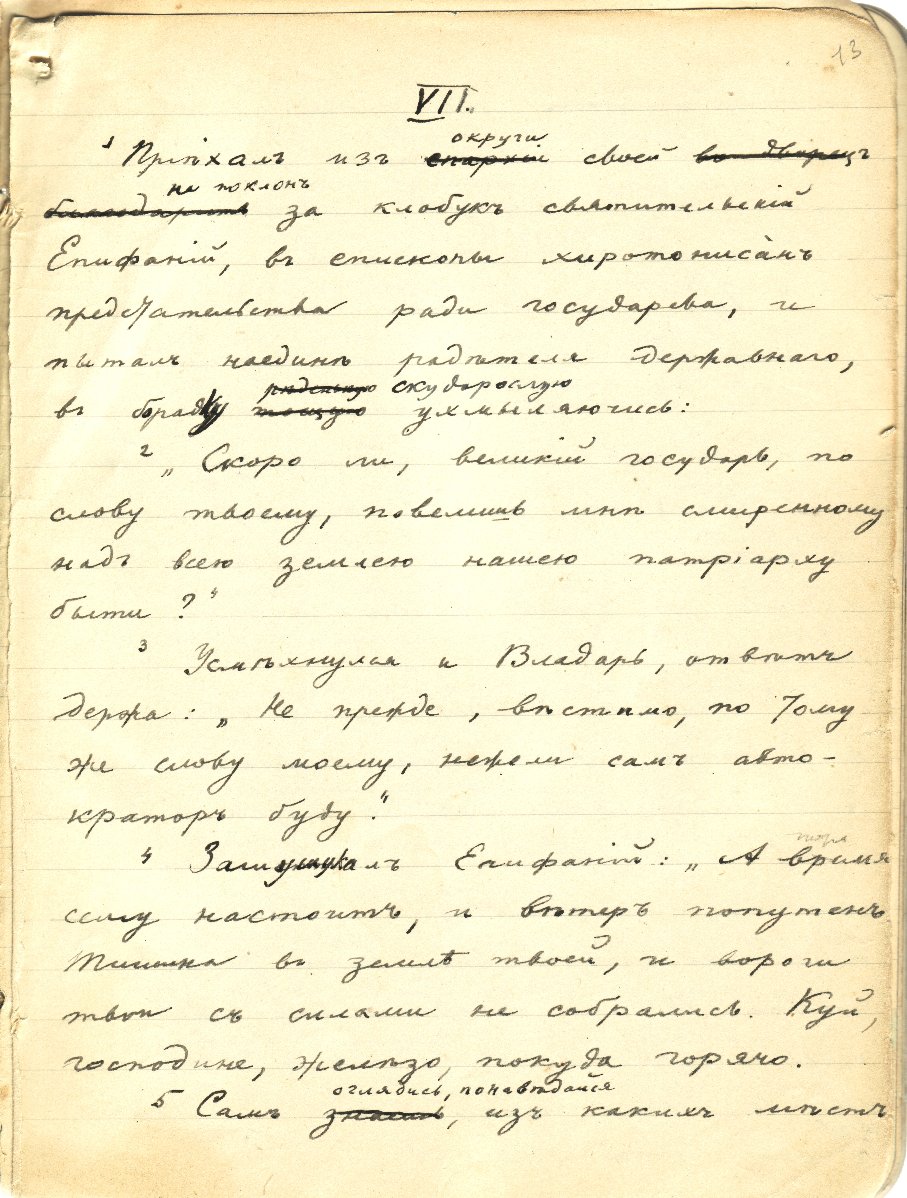 13
VII.
округи
1 Пріѣхалъ изъ епархіи своей во дворецъ
на поклонъ
благодарить за клобукъ святительскій
Епифаній, въ епископы хиротонисанъ
предстательства ради государева, и
пыталъ наединѣ радѣтеля державнаго,
рѣденькую скудорослую
въ бородку тощую ухмыляючись:
2 „Скоро ли, великій государь, по
слову твоему, повелишь мнѣ смиренному
надъ всею землею нашею патріарху
быти?“
3 Усмѣхнулся и Владарь, отвѣтъ
держа: „Не прежде, вѣстимо, по тому
же слову моему, нежели самъ авто-
краторъ буду“.
4 Епифаній: „А время
сему настоитъ, и вѣтеръ попутенъ
Тишина въ землѣ твоей, и вороги
твои съ силами не собрались. Куй,
господине, желѣзо, покуда горячо.
оглядись, понавѣдайся
5 Самъ знаешь, изъ какихъ мѣстъ